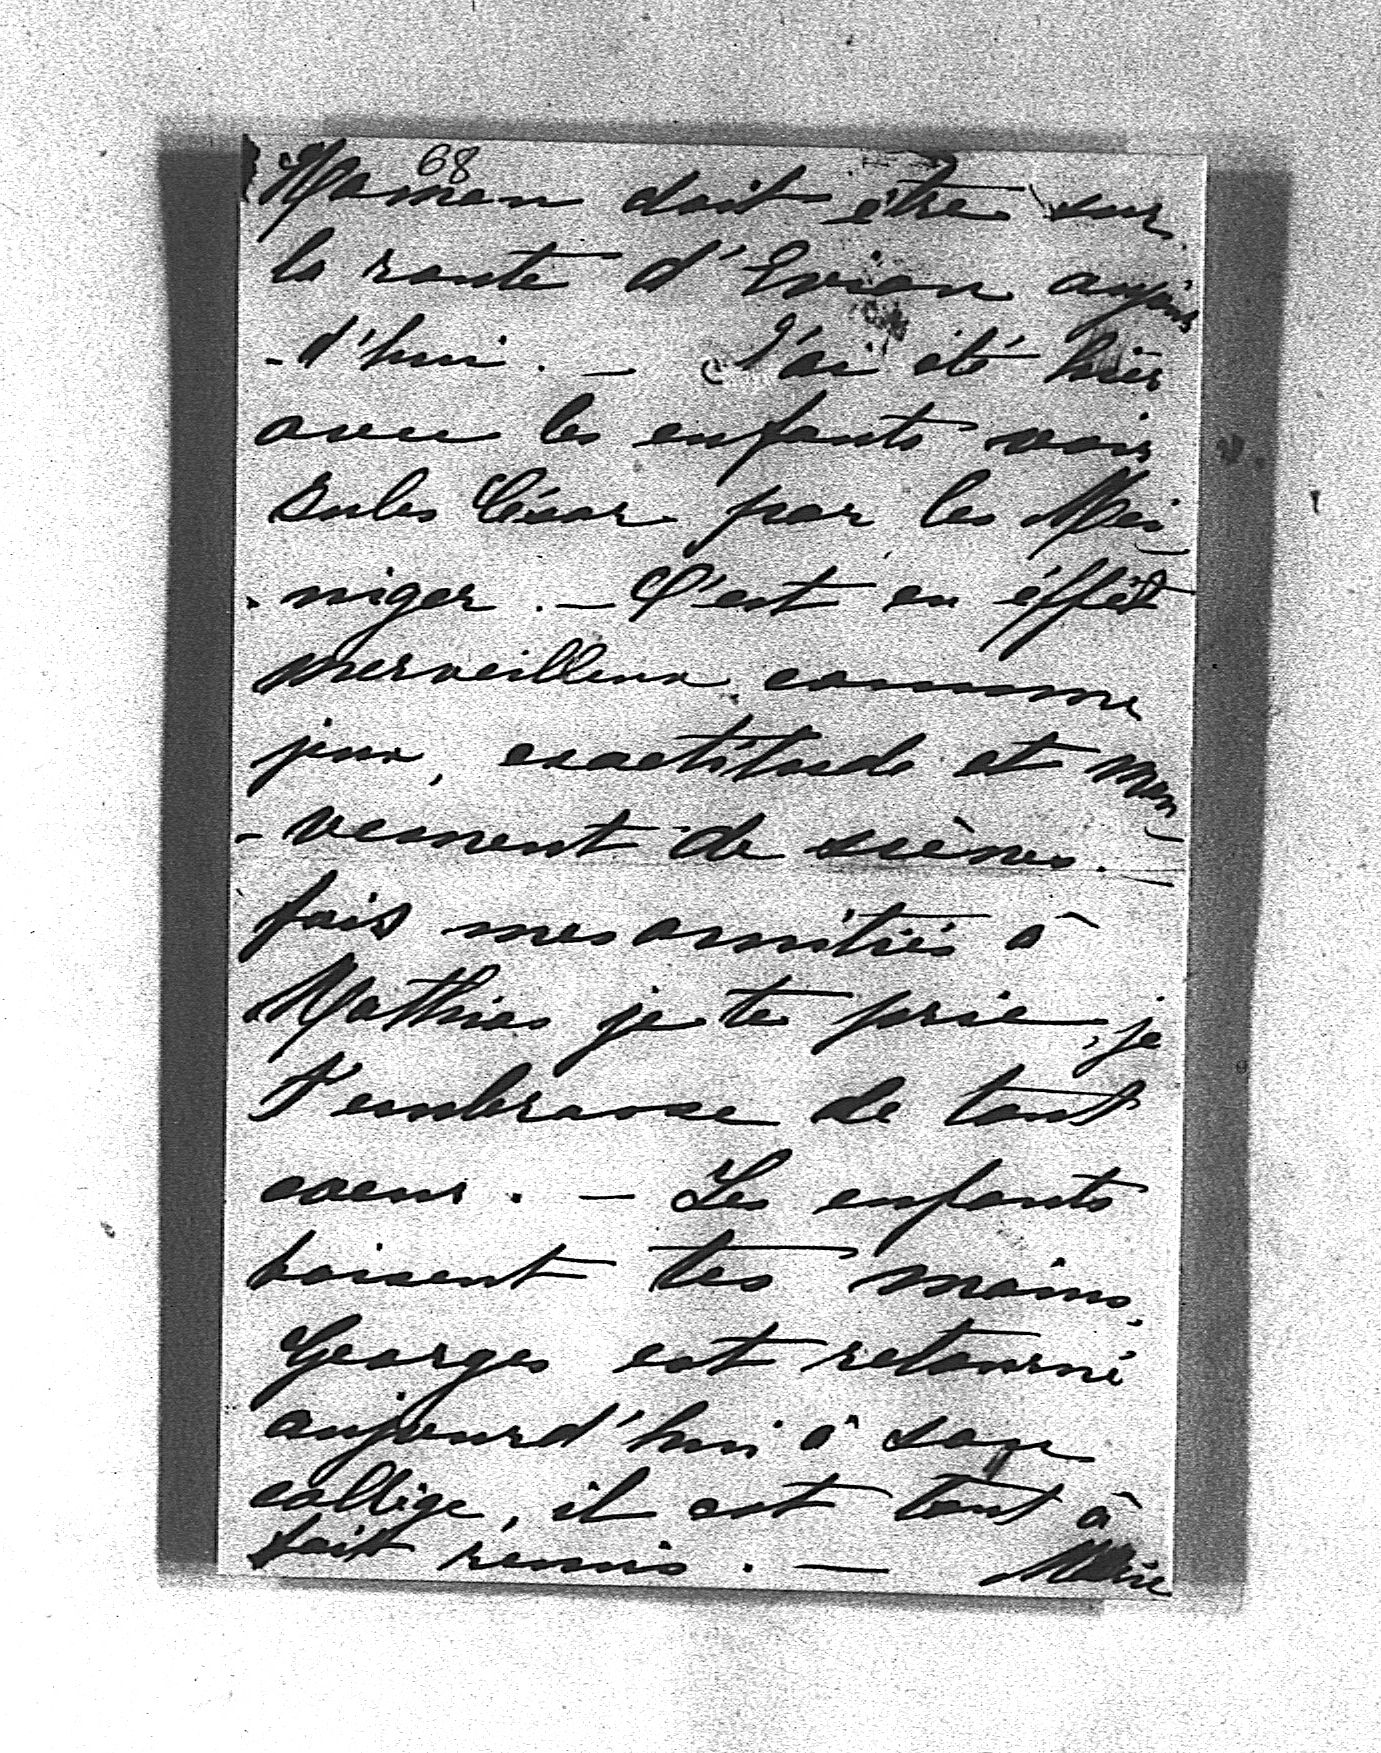 68
Maman doit être sur
la route d'Evian aujour
-d'hui. — J'ai été hier
avec les enfants voir
Jules César par les Mei-
-niger. — C'est en éffet
merveilleux comme
jeux, exactitude et mou-
-vement de scènes. —
fais mes amitiés à
Mathias je te prie, je
t'embrasse de tout
coeur. — Les enfants
baisent tes mains,
Georges est retourné
aujourd'hui à son
collège, il est tout à
fait remis. — Marie